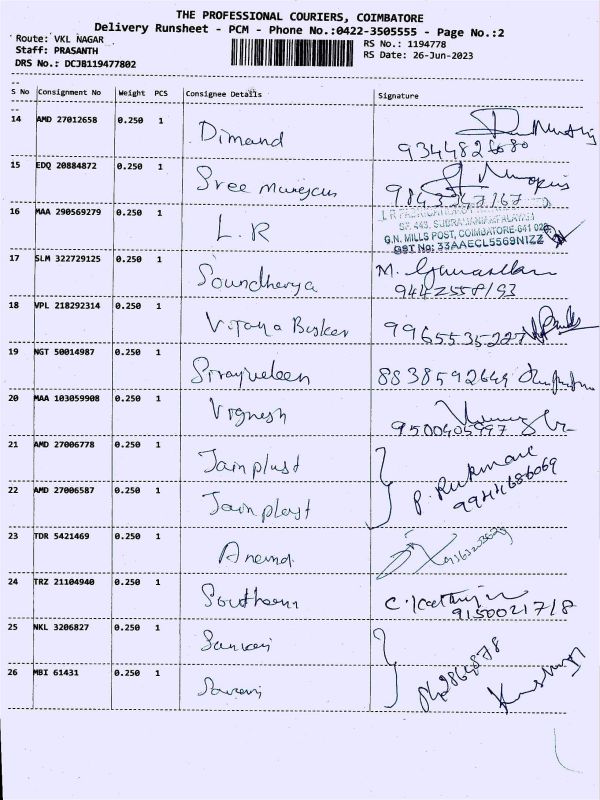 THE PROFESSIONAL COURIERS, COIMBATORE
Delivery Runsheet - PCM - Phone No.:0422-3505555 - Page No.:2
Route: VKL NAGAR
RS No.: 1194778
Staff: PRASANTH
RS Date: 26-Jun-2023
DRS No.: DCJB119477802
S No Consignment No Weight PCS Consignee Details Signature
14 AMD 27012658 0.250 1 Dimand
15 EDQ 20884872 0.250 1 Sree
16 MAA 290569279 0.250 1 L.R
SF. 443, SUBRAMANIAMPALAYAM
G.N. MILLS POST, COIMBATORE-641 029
GST No: 33AAECL5569N1ZZ
17 SLM 322729125 0.250 1 Soundherya M.
18 VPL 218292314 0.250 1 Vijaya Basker
19 NGT 50014987 0.250 1 8838592649
20 MAA 103059908 0.250 1 Vignesh
9500405997
21 AMD 27006778 0.250 1 Jainplast
P. Rukmani
9944686069
22 AMD 27006587 0.250 1 Jainplast
23 TDR 5421469 0.250 1 Anand
24 TRZ 21104940 0.250 1 Southern
9150021718
25 NKL 3206827 0.250 1
26 MBI 61431 0.250 1